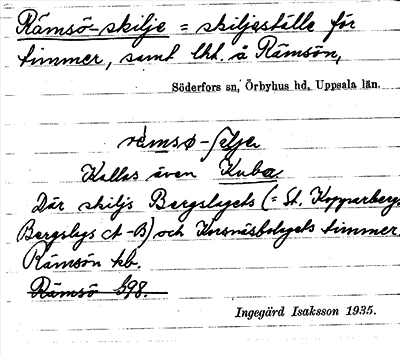 Rämsö-skilje = skiljeställe för
timmer, samt lht. å Rämsön,
Söderfors sn, Örbyhus hd, Uppsala län.
ræmsø-ʃeljə
Kallas även Kuba
Där skiljs Bergslagets (= St. Kopparbergs
Bergslags A-B) och Korsnäsbolagets timmer
Rämsön kb.
Rämsö S98.
Ingegärd Isaksson 1935.